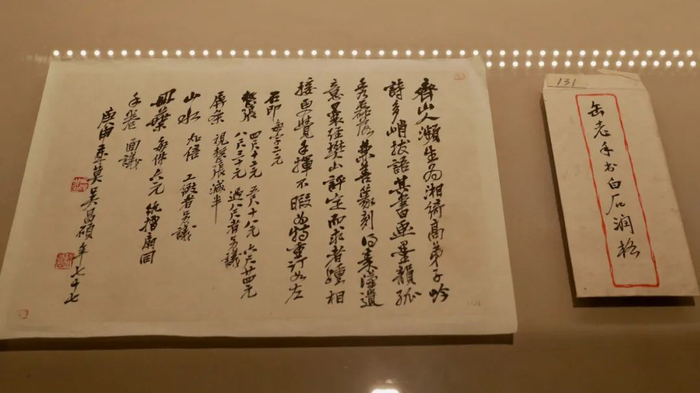 齊山人瀕生為湘綺高弟子吟
詩多峭拔語其書畫墨韻孤
秀磊落兼善篆刻得秦漢遺
意曩經樊山評定而求者踵相
接更覺手揮不暇為特重訂如左
石印 每字二元
整張 四尺十二元 五尺十八元 六尺廿四元
八尺三十元 過八尺者另議
屏条 視整張減半
山水 加倍 工緻者另議
册葉 每件六元 紈摺扇同
手卷 面議
庚申歲莫吳昌碩年七十七
131
缶老手书白石润格